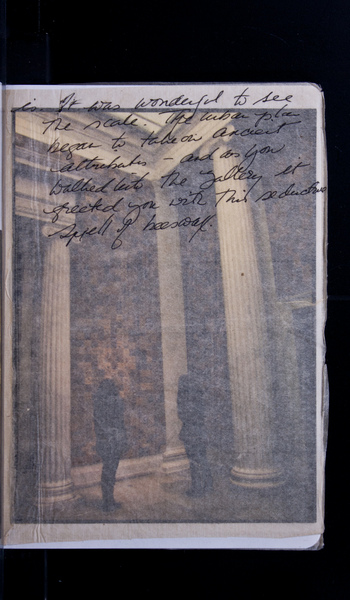 is. It was wonderful to see
the scale. The urban plan
began to take on ancient
attributes – and as you
walked into the gallery it
greeted you with this seductive
spell of beeswax.